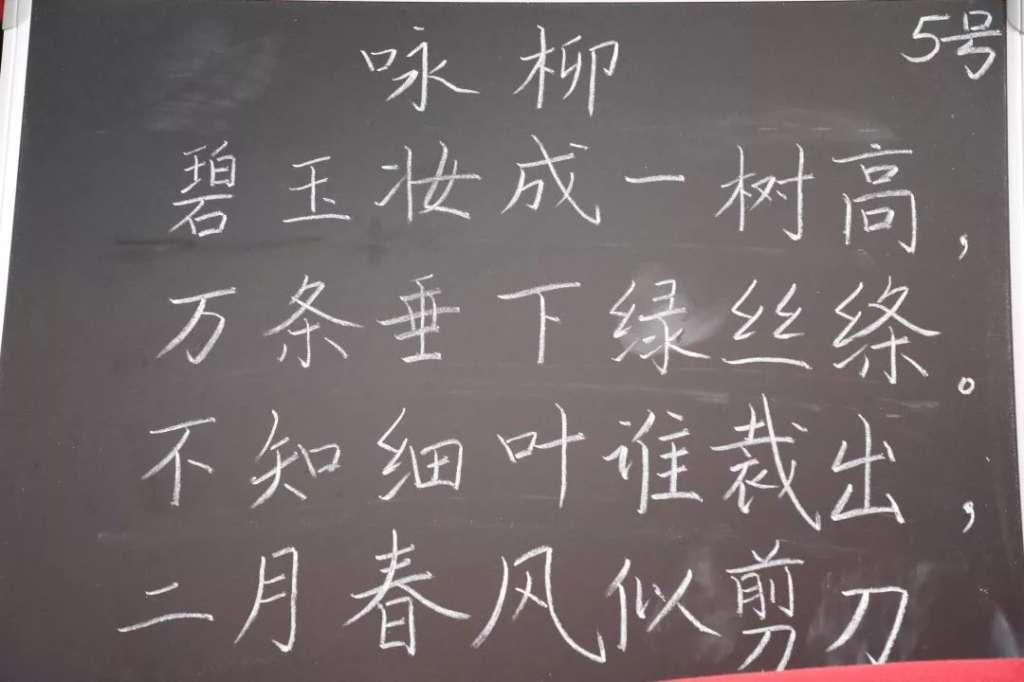 5号
咏柳
碧玉妆成一树高，
万条垂下绿丝绦。
不知细叶谁裁出，
二月春风似剪刀